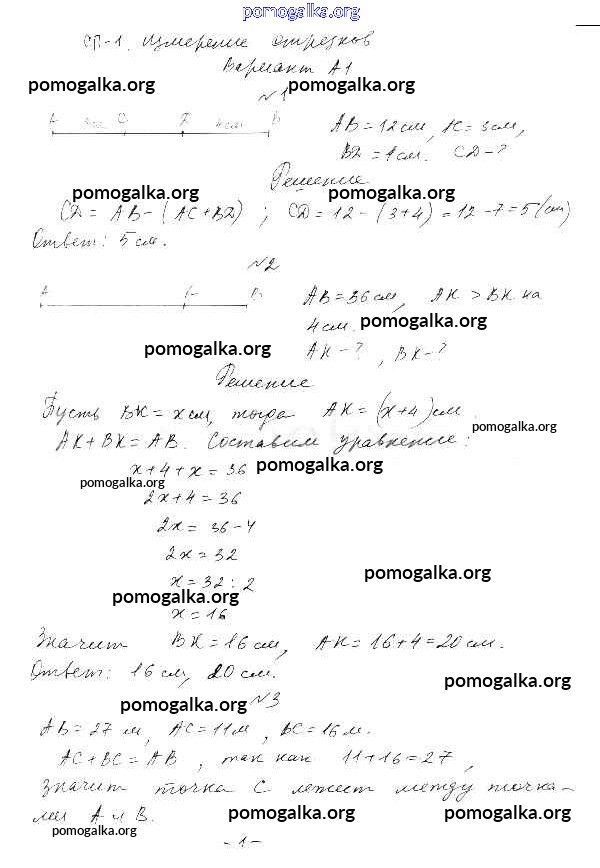 pomogalka.org
СП-1. Измерение отрезков
Вариант А1
pomogalka.org pomogalka.org
№1
A 3см C D 4см B
AB = 12 см, AC = 3 см,
BD = 4 см. CD - ?
Решение
pomogalka.org pomogalka.org
CD = AB - (AC + BD) ; CD = 12 - (3+4) = 12 - 7 = 5 (см)
Ответ: 5 см.
№2
A K B
AB = 36 см, AK > BK на
4 см. pomogalka.org
pomogalka.org AK - ?, BK - ?
Решение
Пусть BK = x см, тогда AK = (x+4) см
pomogalka.org
AK + BK = AB. Составим уравнение:
x + 4 + x = 36 pomogalka.org
pomogalka.org
2x + 4 = 36
2x = 36 - 4
2x = 32
pomogalka.org
x = 32 : 2
pomogalka.org
x = 16
Значит BK = 16 см, AK = 16 + 4 = 20 см.
Ответ: 16 см, 20 см.
pomogalka.org
pomogalka.org №3
AB = 27 м, AC = 11 м, BC = 16 м.
AC + BC = AB, так как 11 + 16 = 27,
значит точка C лежит между точка-
ми A и B. pomogalka.org pomogalka.org
pomogalka.org
-1-